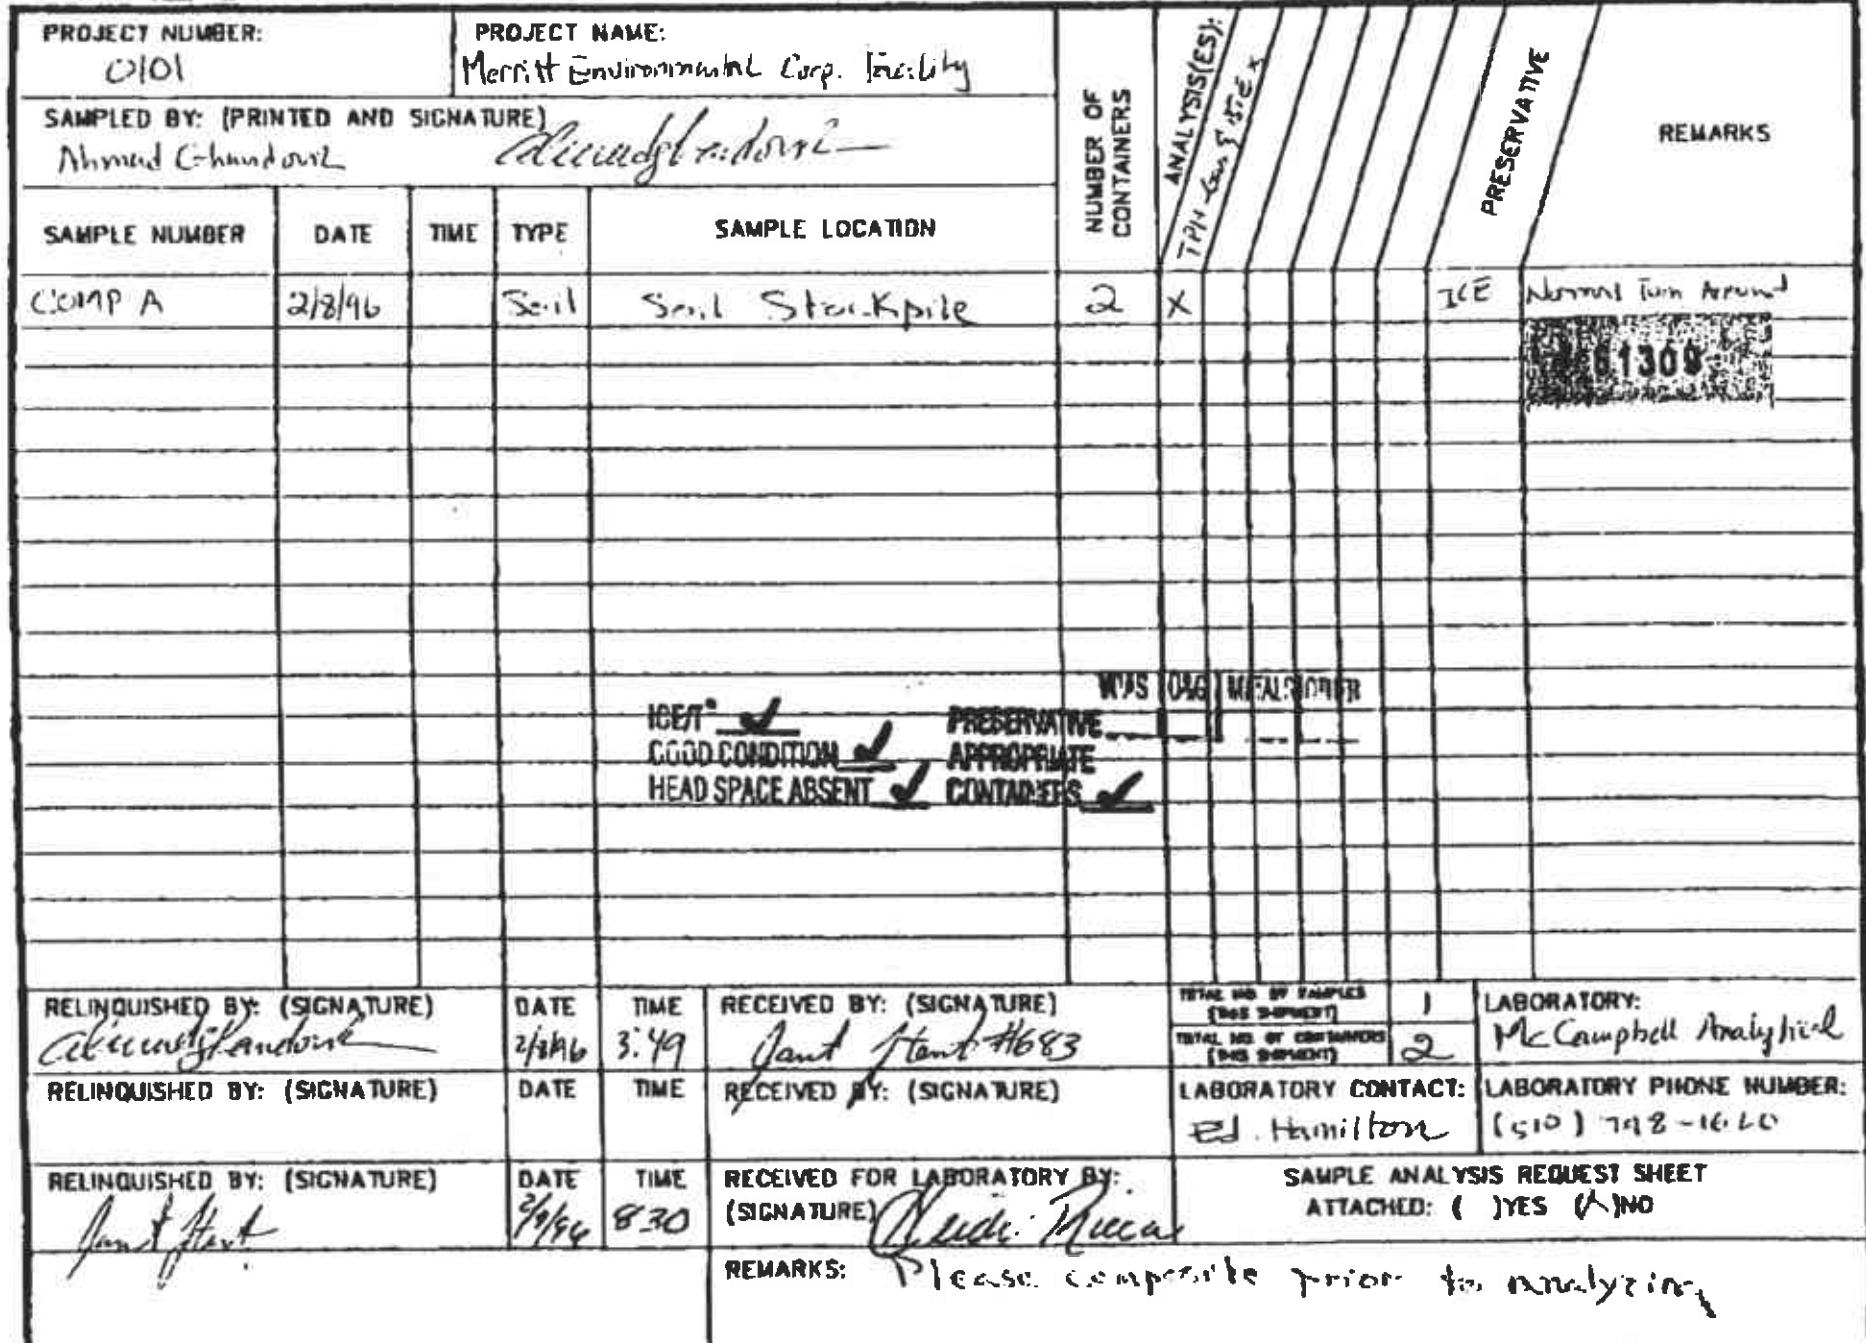 PROJECT NUMBER:
0101
PROJECT NAME:
Merritt Environmental Corp. Facility
SAMPLED BY: (PRINTED AND SIGNATURE)
Ahmad Ghandour
NUMBER OF CONTAINERS
ANALYSIS(ES):
TPH-Gas & BTEX
PRESERVATIVE
REMARKS
SAMPLE NUMBER
DATE
TIME
TYPE
SAMPLE LOCATION
COMP A 2/8/96 Soil Soil Stockpile 2 X ICE Normal Turn Around
61309
VOAS O&G METALS OTHER
ICE/T° ✓ PRESERVATIVE
GOOD CONDITION ✓ APPROPRIATE
HEAD SPACE ABSENT ✓ CONTAINERS ✓
RELINQUISHED BY: (SIGNATURE)
DATE
2/8/96
TIME
3:49
RECEIVED BY: (SIGNATURE)
#683
TOTAL NO. OF SAMPLES
(THIS SHIPMENT)
1
TOTAL NO. OF CONTAINERS
(THIS SHIPMENT)
2
LABORATORY:
McCampbell Analytical
RELINQUISHED BY: (SIGNATURE)
DATE
TIME
RECEIVED BY: (SIGNATURE)
LABORATORY CONTACT:
Ed Hamilton
LABORATORY PHONE NUMBER:
(510) 798-1620
RELINQUISHED BY: (SIGNATURE)
DATE
2/9/96
TIME
830
RECEIVED FOR LABORATORY BY:
(SIGNATURE)
SAMPLE ANALYSIS REQUEST SHEET
ATTACHED: ( )YES (X)NO
REMARKS: Please composite prior to analyzing